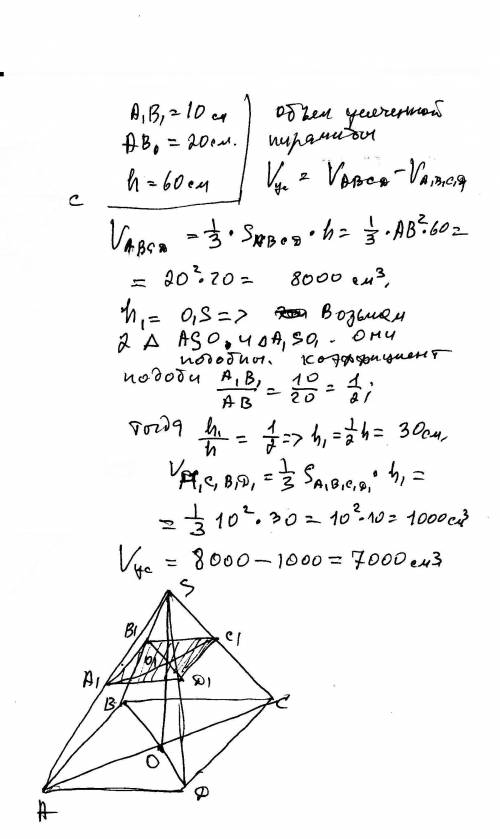 A₁B₁ = 10 см
AB = 20 см.
h = 60 см
Объем усеченной
пирамиды
Vус = VABCД - VA₁B₁C₁Д₁
с
VABCД = 1/3 · SABCД · h = 1/3 · AB² · 60 =
= 20² · 20 = 8000 см³,
h₁ = O₁S => Возьмем
2 Δ ASO и ΔA₁SO₁ . Они
подобны. Коэффициент
подоби A₁B₁/AB = 10/20 = 1/2;
Тогда h₁/h = 1/2 => h₁ = 1/2 h = 30 см,
VA₁C₁B₁Д₁ = 1/3 SA₁B₁C₁Д₁ · h₁ =
= 1/3 10² · 30 = 10² · 10 = 1000 см³
Vус = 8000 - 1000 = 7000 см³
S
B₁
C₁
O₁
A₁
Д₁
B
C
O
A
Д